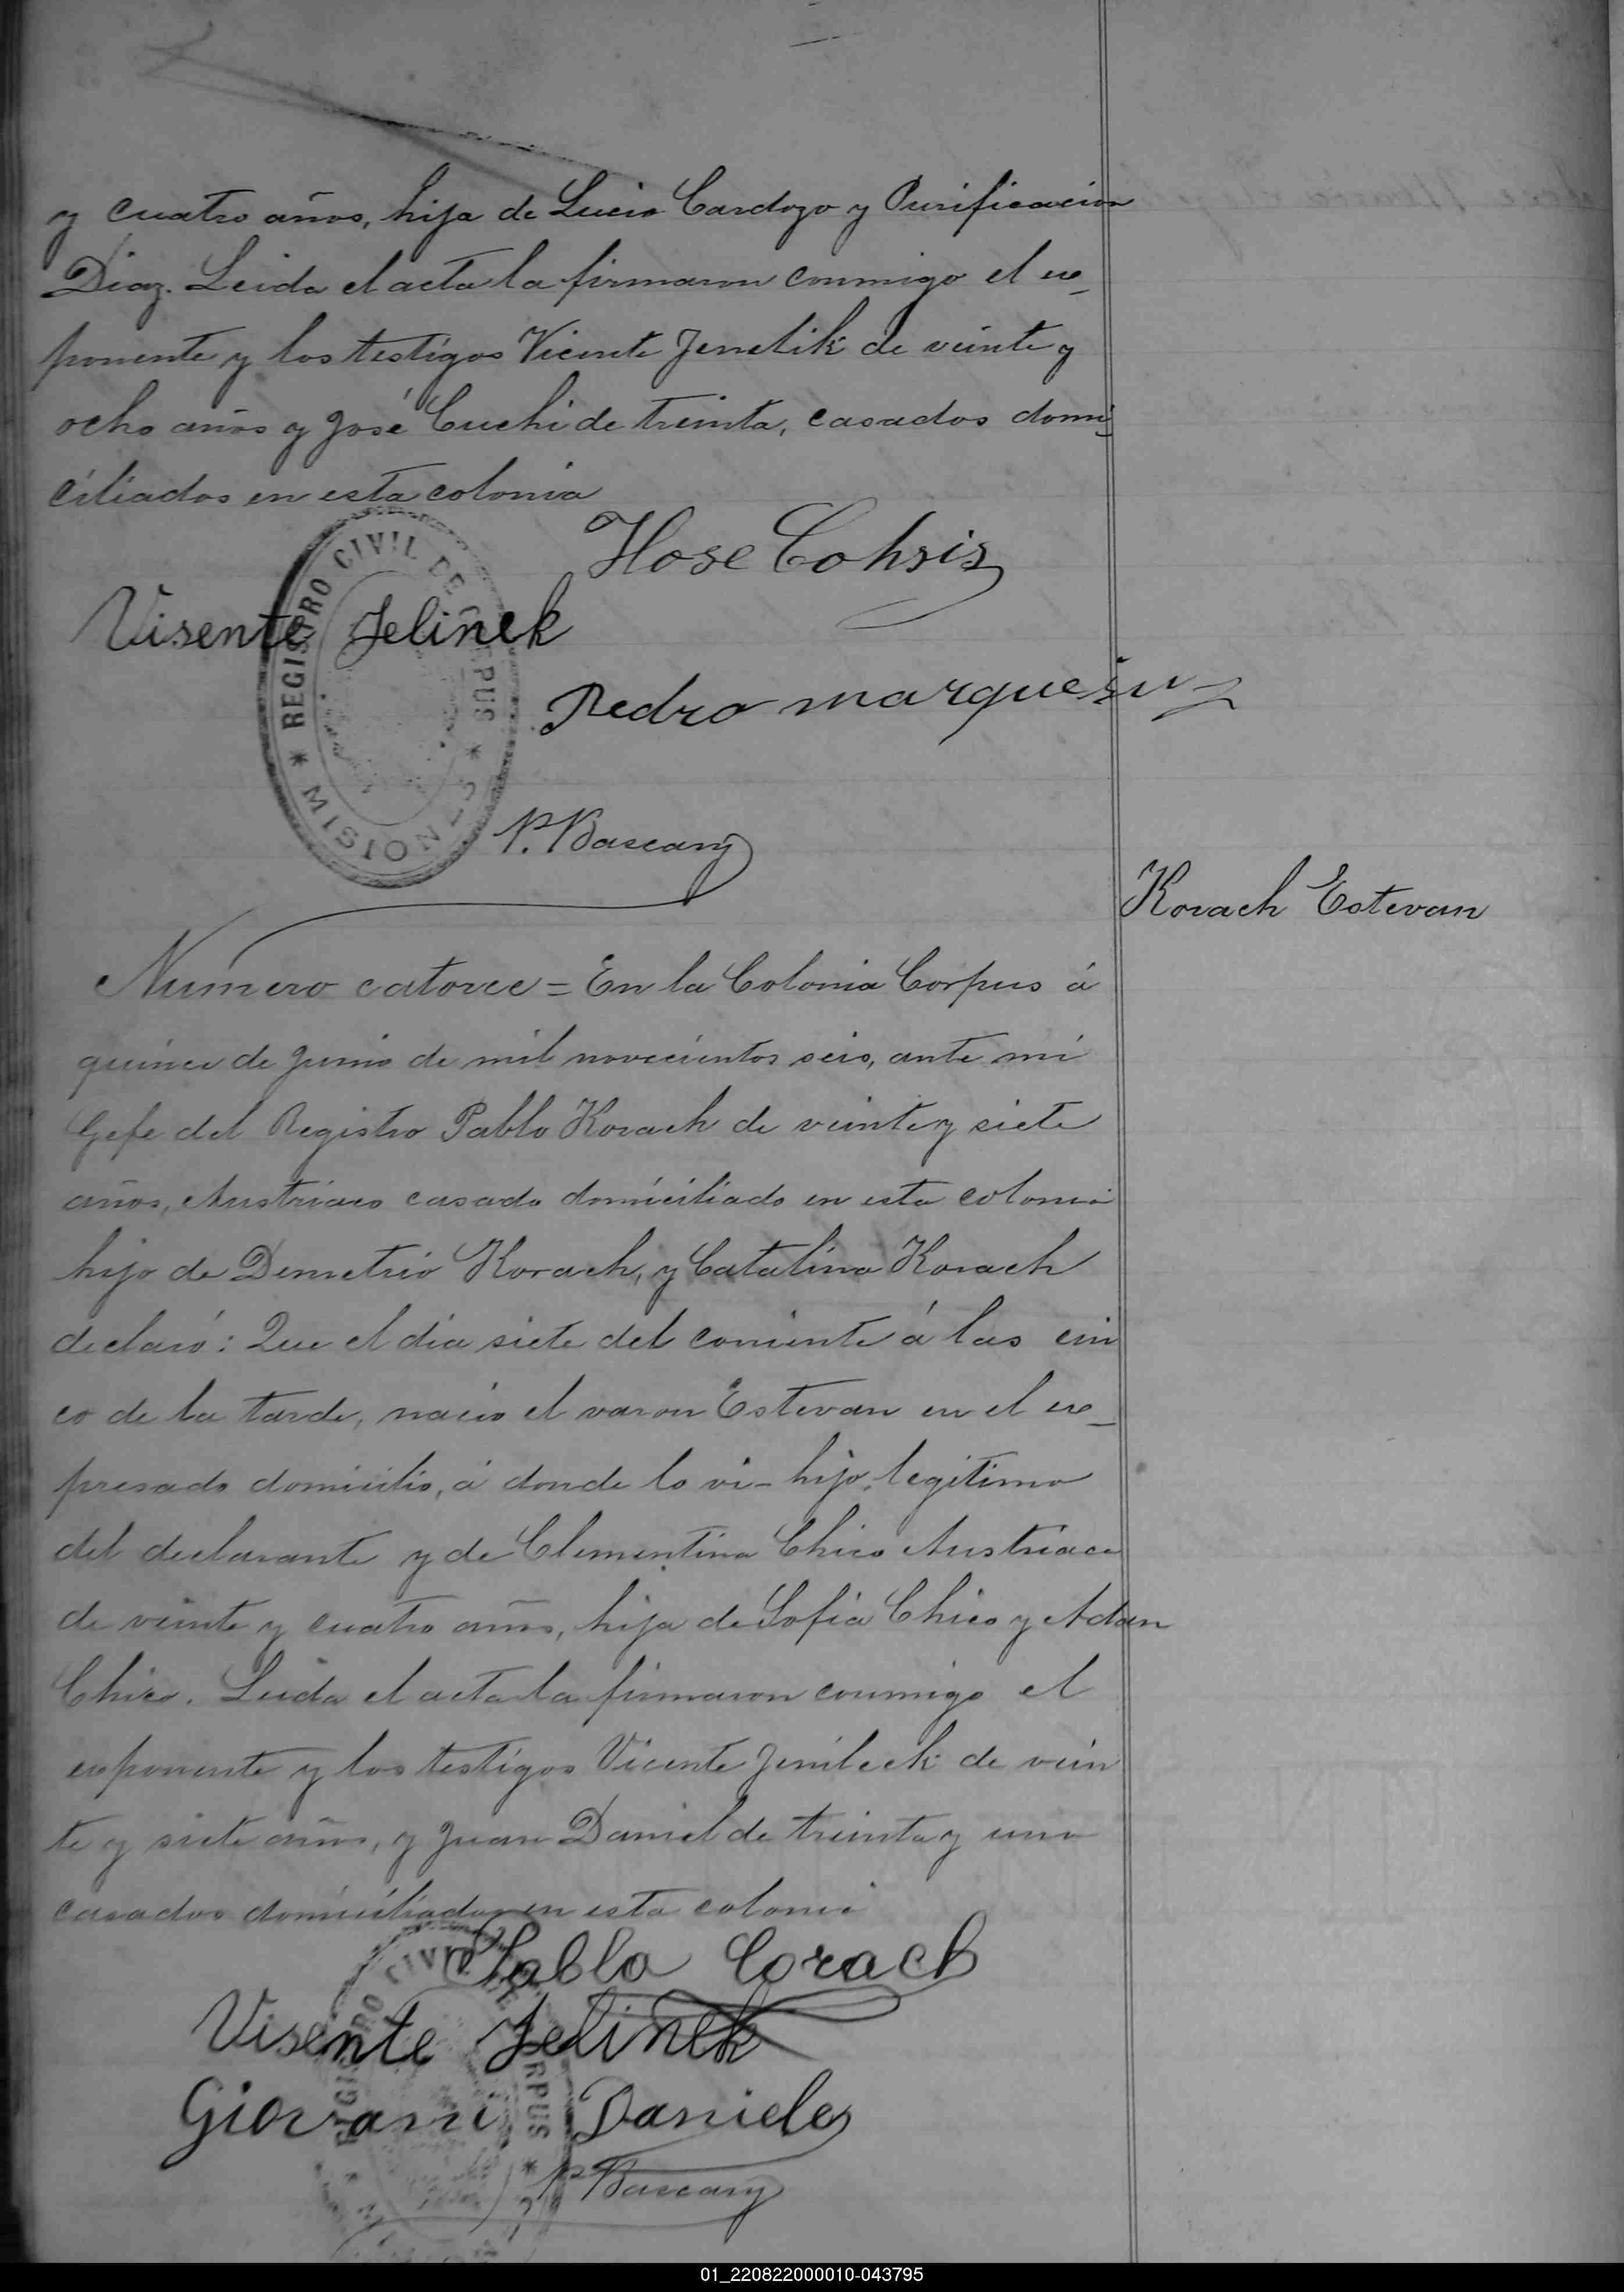 y cuatro años, hija de Lucio Cardozo y Purificacion
Diaz. Leida el acta la firmaron conmigo el ex_
ponente y los testigos Vicente Jenelik de veinte y
ocho años y José Cuchi de treinta, casados domi_
ciliados en esta colonia
Hose Cohsis
Visente Jelinek
Pedro marquesin
P. Bascary
REGISTRO CIVIL DE CORPUS * MISIONES *
Korach Estevan
Numero catorce = En la Colonia Corpus á
quince de Junio de mil novecientos seis, ante mi
Gefe del Registro Pablo Korach de veinte y siete
años, Austriaco casado domiciliado en esta colonia
hijo de Demetrio Korach, y Catalina Korach
declaró: Que el dia siete del corriente á las cin
co de la tarde, nacio el varon Estevan en el ex_
presado domicilio, á donde lo vi - hijo legitimo
del declarante y de Clementina Chico Austriaca
de veinte y cuatro años, hija de Sofia Chico y Adan
Chico. Leida el acta la firmaron conmigo el
exponente y los testigos Vicente Jenileck de vein
te y siete años, y Juan Daniel de treinta y uno
casados domiciliados en esta colonia
Pablo Corach
Visente Jelinek
Giovani Daniele
P. Bascary
01_220822000010-043795